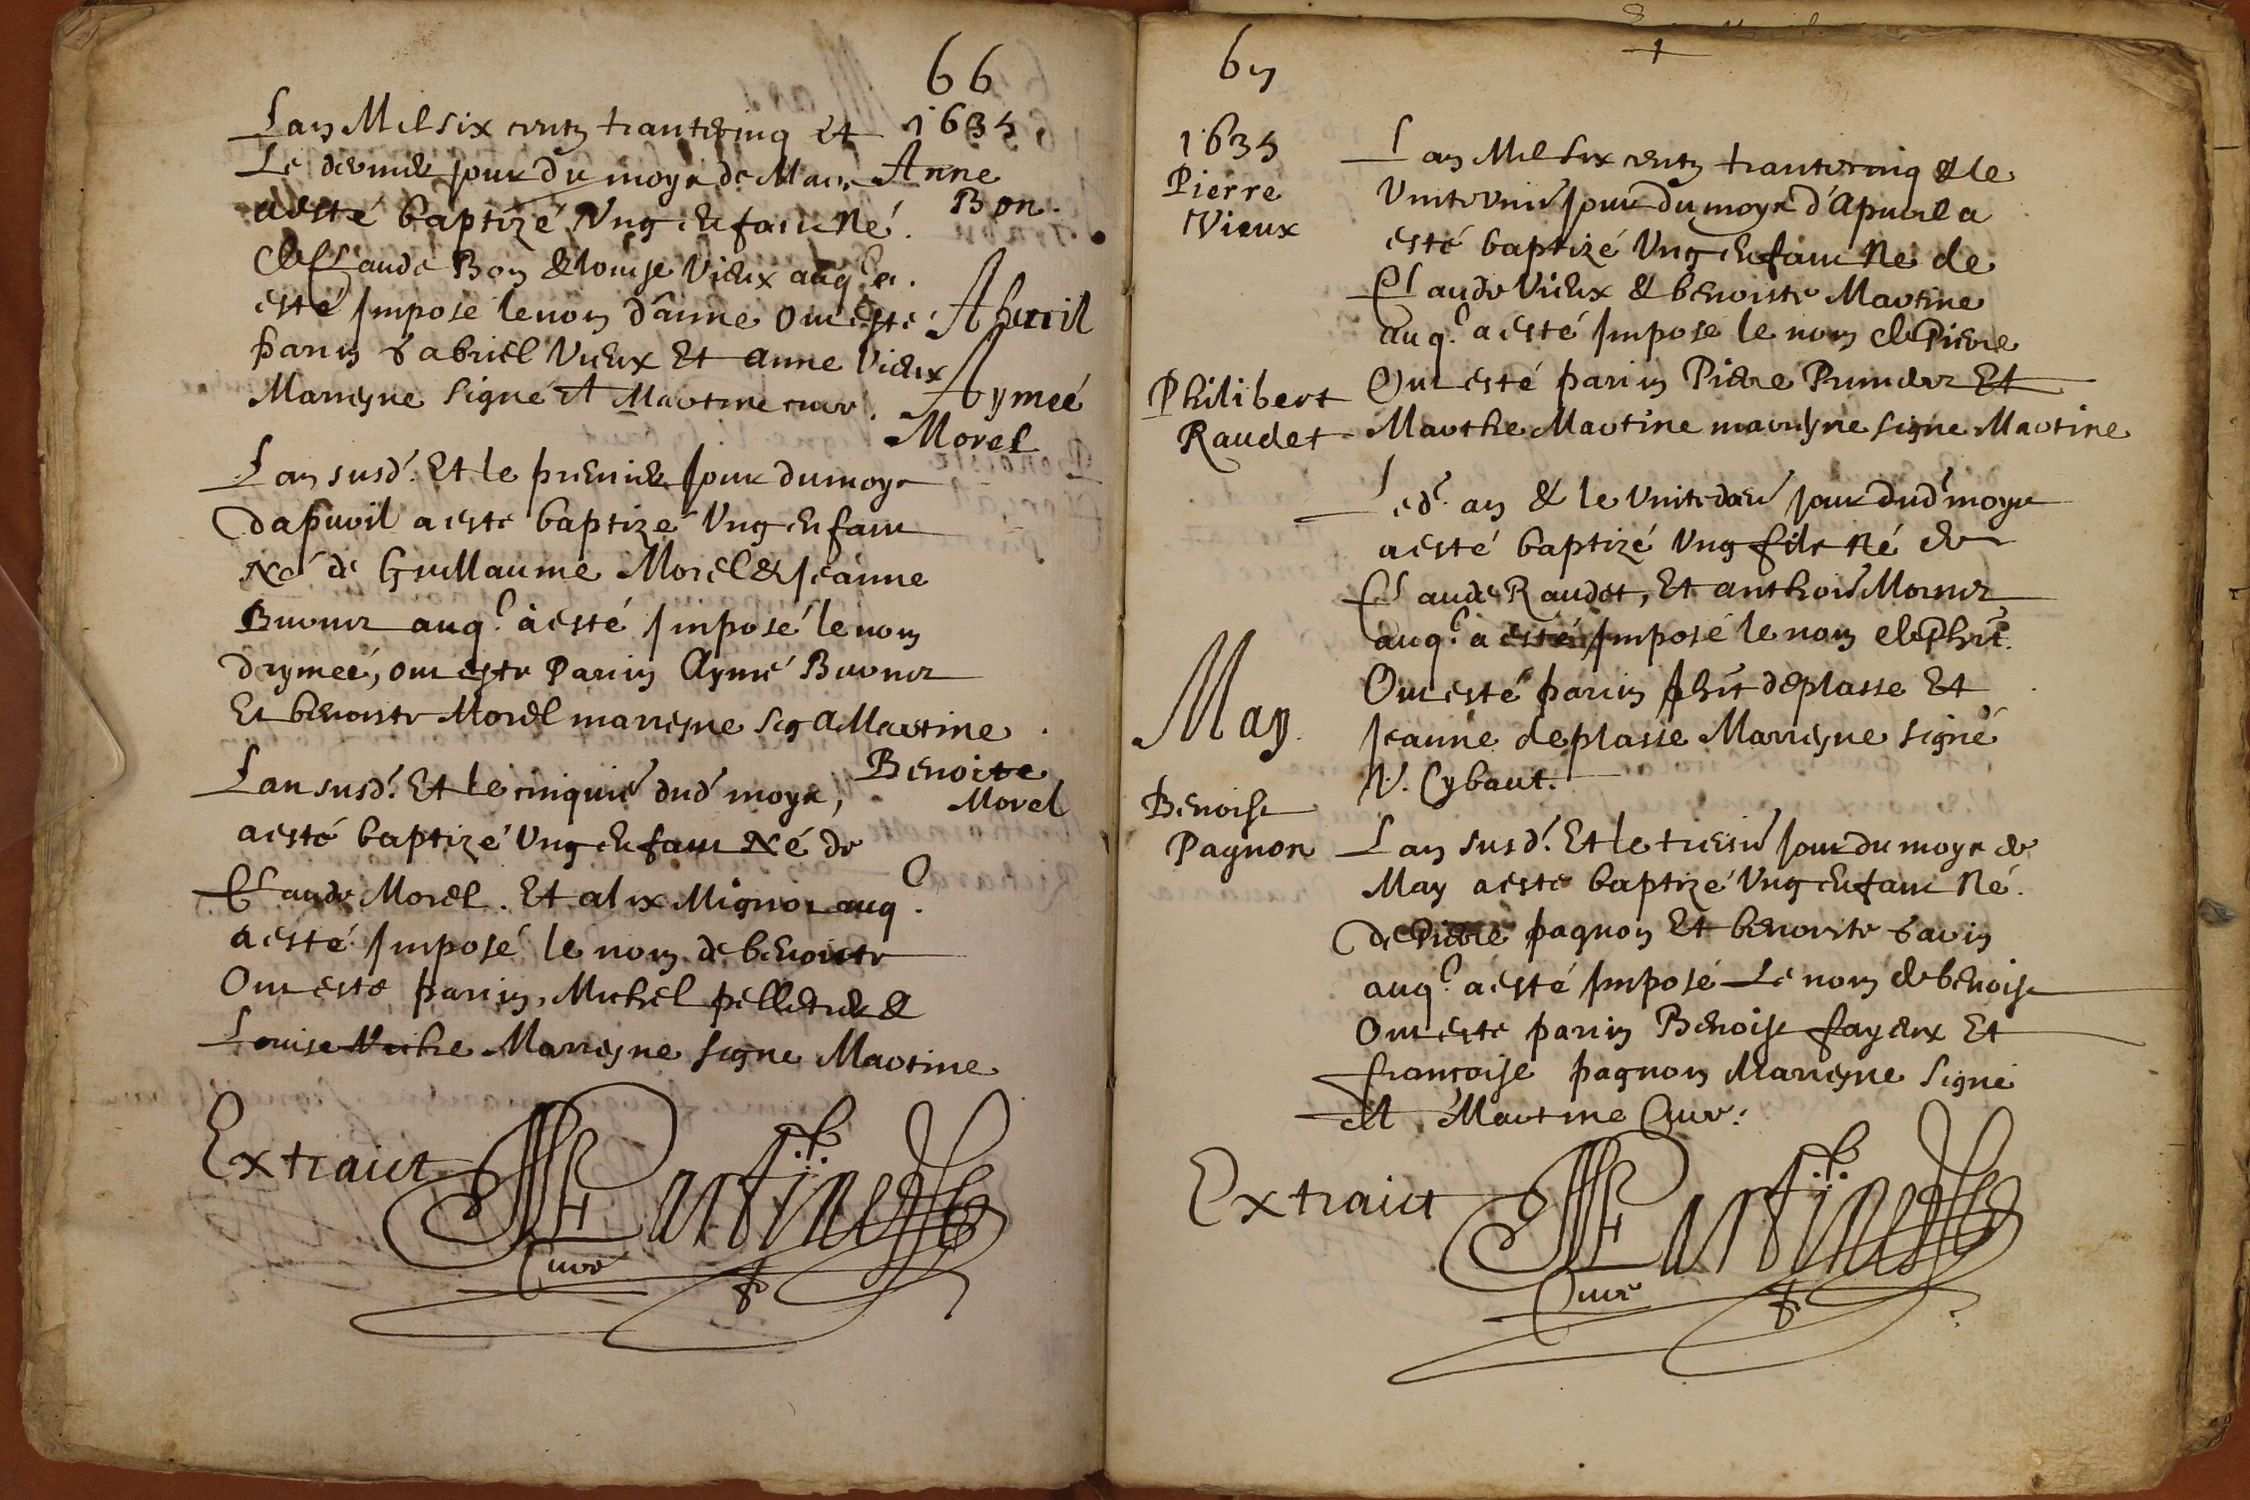 66
1635
Lan Mil six centz trantecinq et
Le dernier jour du moys de Mars
a esté baptizé Ung enfant Né
Anne
Bon
de Claude Bon & louise Vieux auql a
esté Imposé le nom d'anne Ont esté
Abvril
parin Gabriel Vieux Et anne Vieux
Marreyne Signé A Martine curé
Aymeé
Morel
Lan susd. Et le premier Jour du moys
dapvril a esté baptizé Ung enfant
Né de Guillaume Morel & Jeanne
auql a esté Imposé le nom
daymeé, ont esté Parin Aymé
Et benoiste Morel marreyne Sig A Martine
Benoite
Morel
Lan susd. Et le cinquie dud moys,
a esté baptizé Ung enfant Né de
Claude Morel. Et alix Mignot auql
a esté Imposé le nom de benoiste
Ont esté parin, Michel pelletier &
Louise Marreyne Signe Martine
Extraict
Martine
Curé
67
1635
Pierre
Vieux
Lan Mil Six centz trantecinq & le
jour du moys d'Apvril a
esté baptizé Ung enfant Né de
Claude Vieux & benoiste Martine
auql a esté Imposé le nom de Pierre
Ont esté parin Pierre Et
Marthe Martine marreyne Signe Martine
Philibert
Raudet
Led. an & le jour dud moys
a esté baptizé Ung filz Né de
Claude Raudet, Et
auql a esté Imposé le nom de Phit.
Ont esté parin phit deplasse Et
Jeanne deplasse Marreyne Signé
N. Cybaut.
May
Benoist
Pagnon
Lan susd. Et le jour du moys de
May a esté baptizé Ung enfant Né
de Pierre pagnon Et benoiste Gavin
auql a esté Imposé Le nom de benoist
Ont esté parin Benoist fayeux Et
francoise pagnon Marreyne Signé
A Martine Curé.
Extraict
Martine
Curé